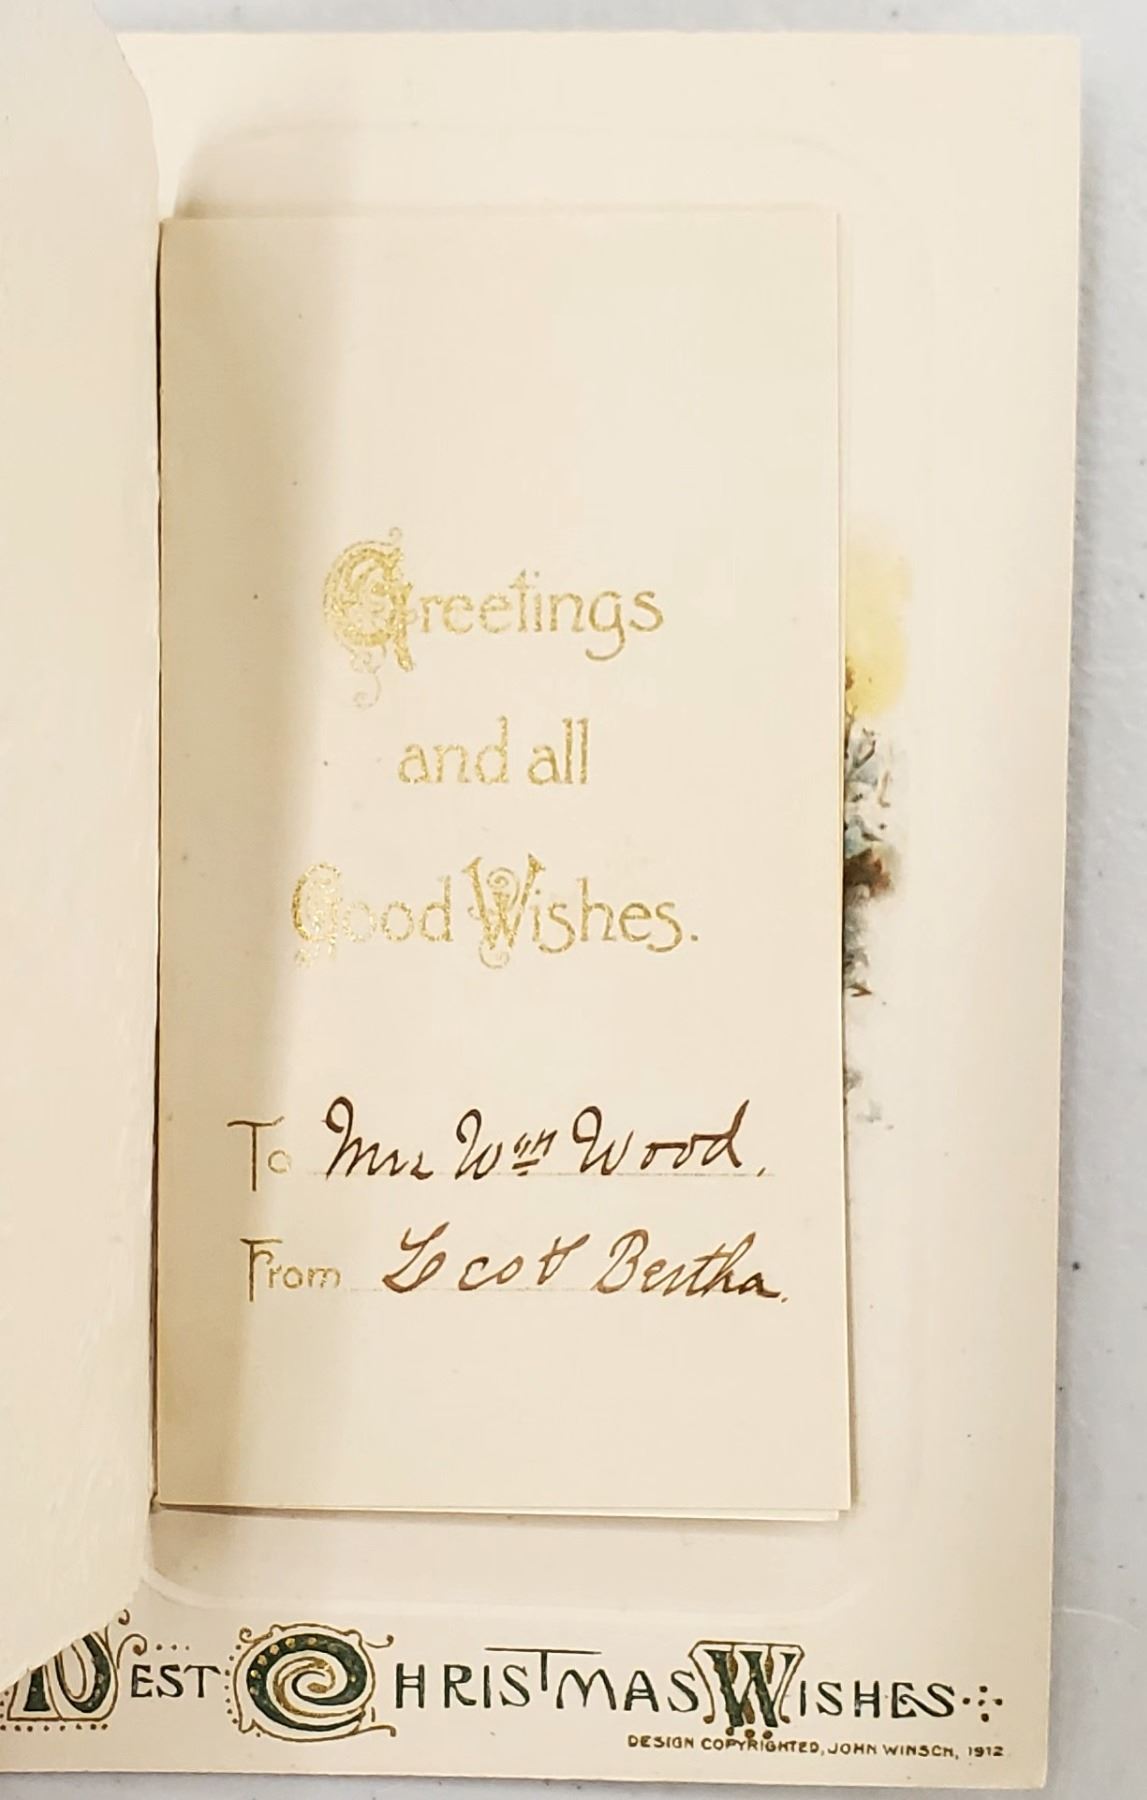 Greetings
and all
Good Wishes.
To Mrs Wm Wood.
From Leo & Bertha.
Best Christmas Wishes
DESIGN COPYRIGHTED, JOHN WINSCH, 1912